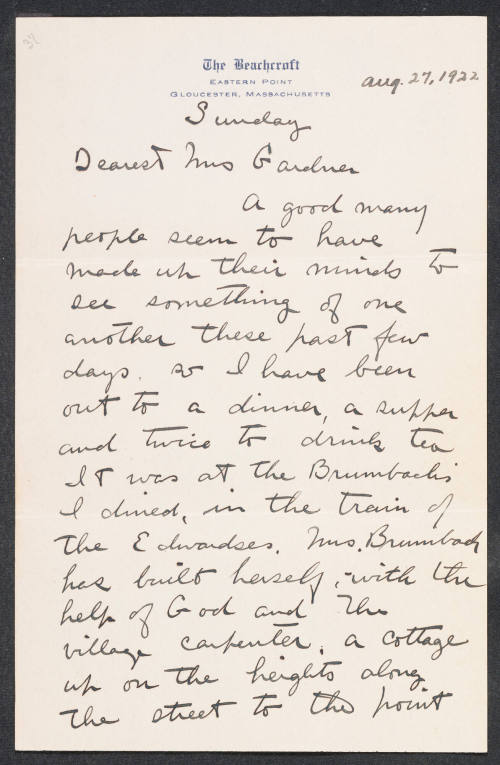 37
The Beachcroft
Eastern Point
Gloucester, Massachusetts
Aug. 27, 1922
Sunday
Dearest Mrs Gardner
A good many
people seem to have
made up their minds to
see something of one
another these past few
days. so I have been
out to a dinner, a supper
and twice to drink tea
It was at the Brumback's
I dined, in the train of
the Edwardses. Mrs. Brumback
has built herself, with the
help of God and the
village carpenter, a cottage
up on the heights along
the street to the point